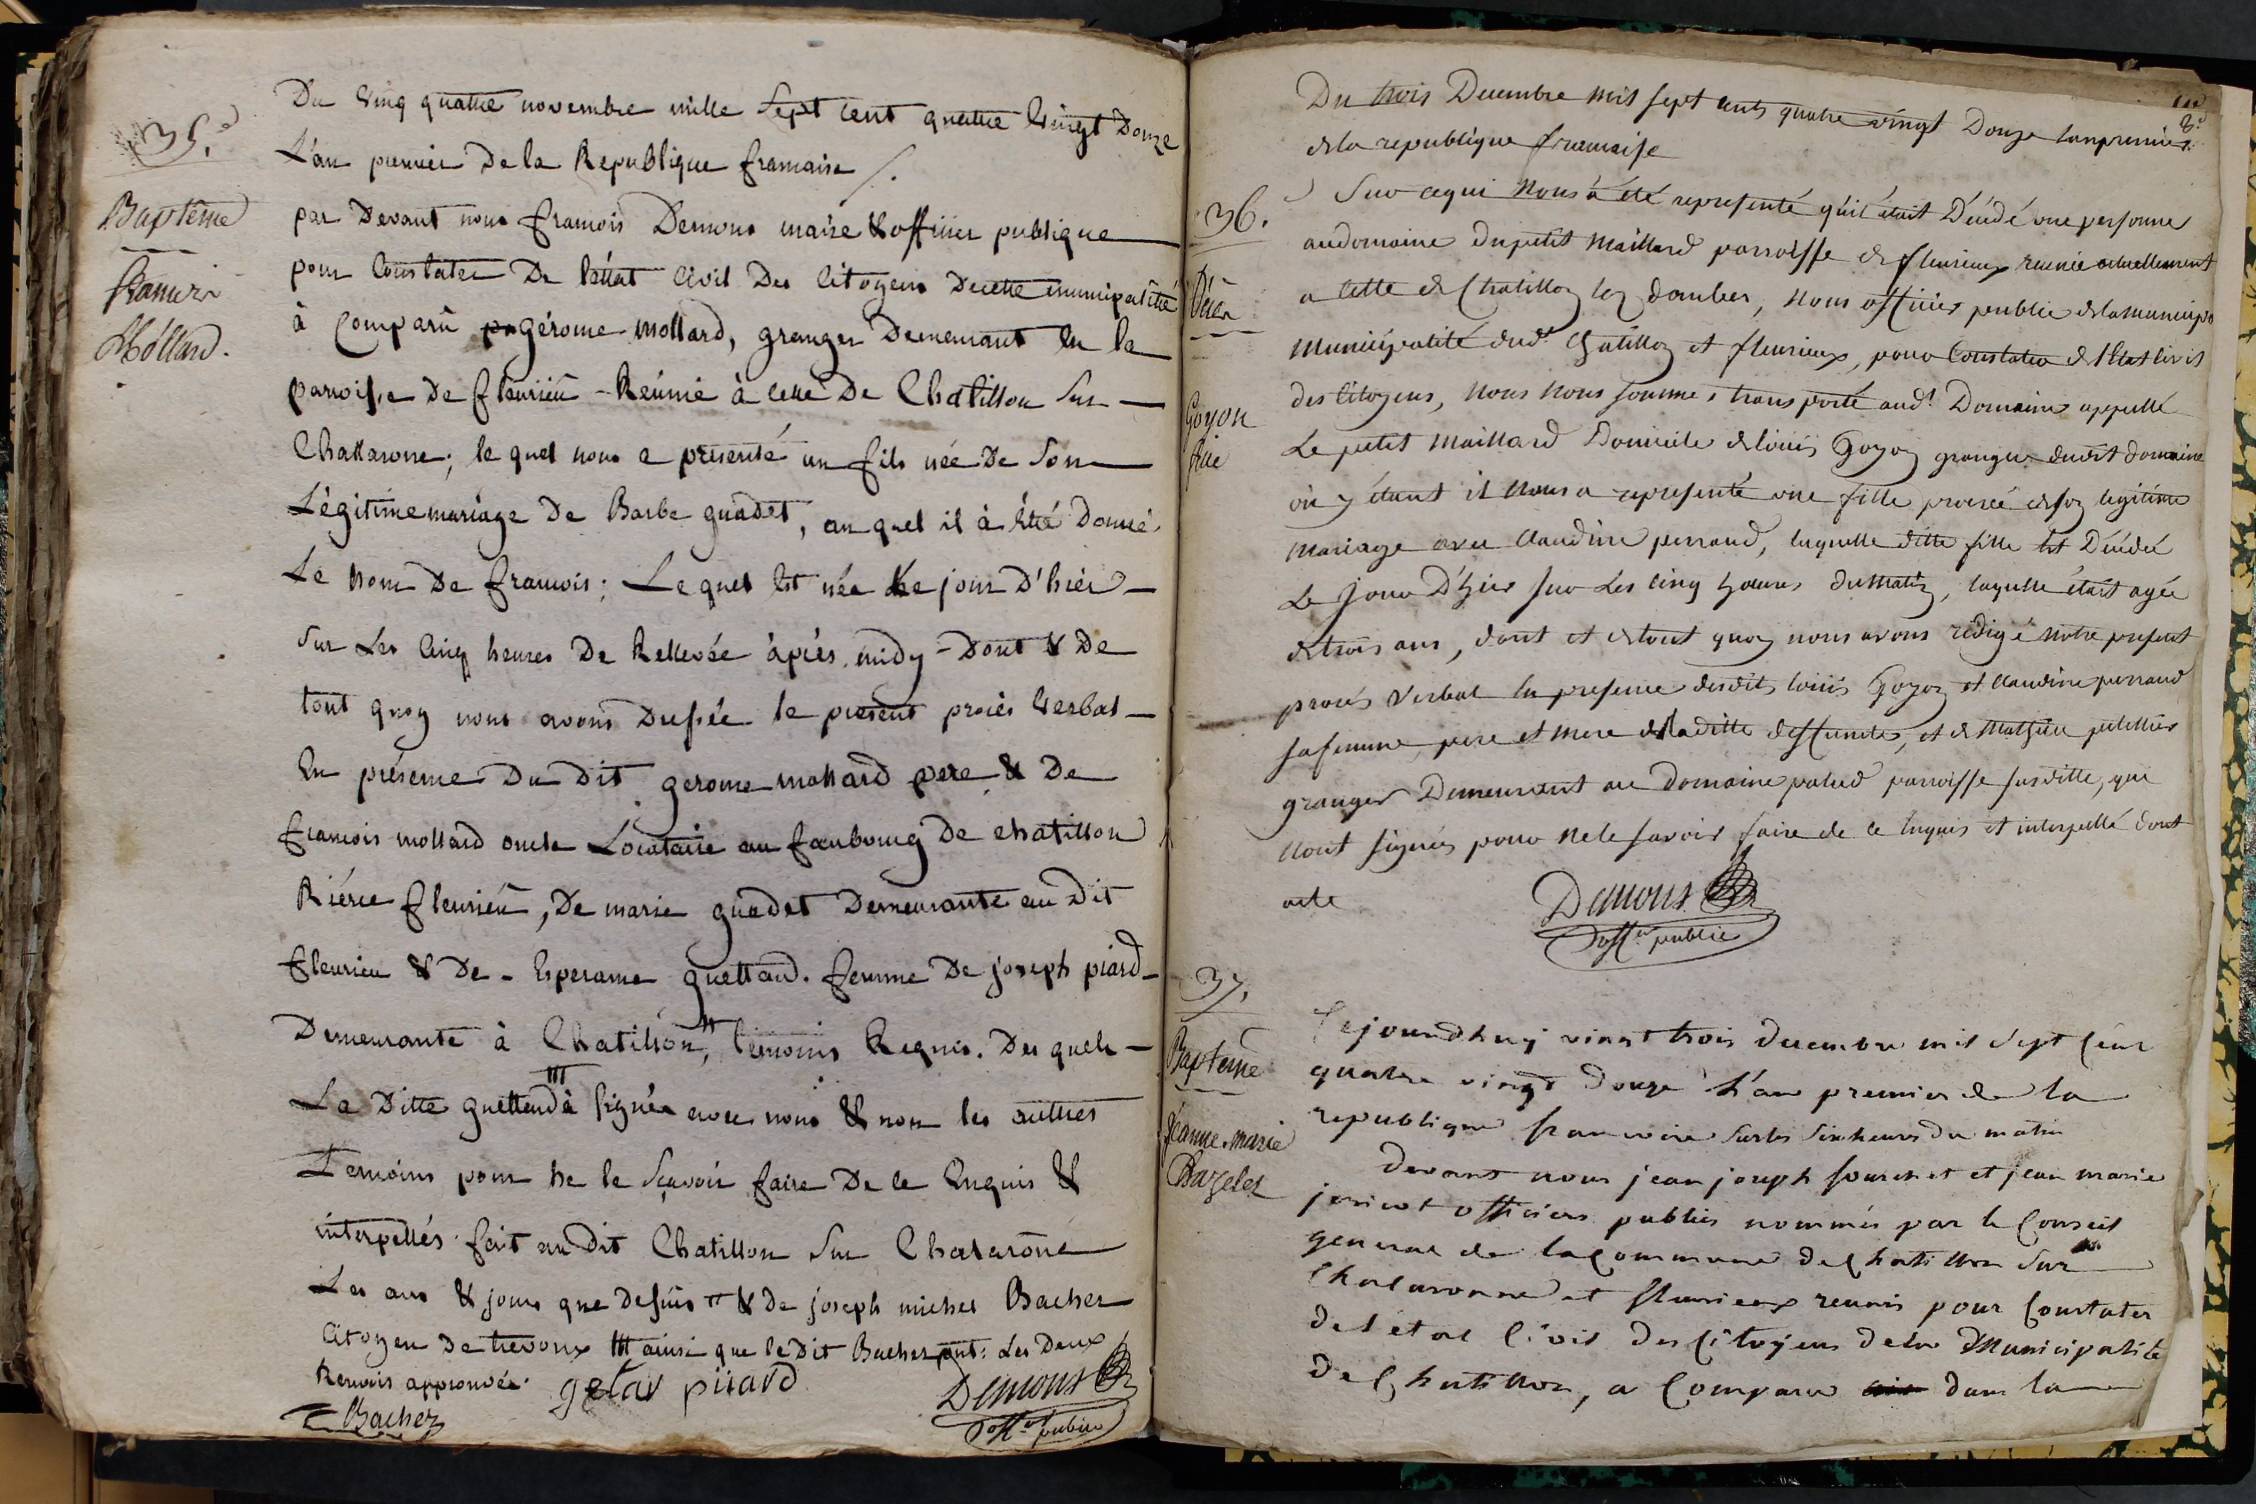 35.e
Baptême
francois
Móllard.
Du vinq quatre novembre mille Sept cent quatre vingt Douze
L'an premier De la Republique francaise /.
par Devant nous francois Demons maire & officier publique
pour Constater De l'états Civil Des Citoyens De cette municipalitté
à Comparû gérome mollard, granger Demeurant en la
parroisse De fleuriéu - Reúnie à celle De Chatillon Sur
Challarone; le quel nous a présenté un fils née De Son
Légitime mariage De Barbe guadet, au quel il à Été Donné
Le nom De francois; Le quel Est née Le jour D'hiér
Sur Les Cinq heures De Rellevée âpiés midy - Dont & De
tout quoy nous avons Dressée le présent procés verbal
En présence Du Dit gerome mollard pere & De
francois mollard oncle Locataire au faubourg De chatillon
Riérre fleuriéu, De marie guadet Demeurante au Dit
fleurieu & De - Esperance guettand. femme De joseph piard
Demeurante à Chatillon, # témoins Requis. Des quels
La Ditte guettand à signée avec nous & non les autres
Temoins pour ne le sçavoir faire De ce Enquis &
interpellés fait au Dit Chatillon Sur Chalarône
Les ans & jours que dessus # & de joseph michel Bacher
Citoyen De trevoux ## ainsi que le Dit Bacher Les Deux
Renvois approuvée. gétar piiard
Bacher
Demons
off.er public
8.e
Du trois Decembre mil sept cents quatre vingt Douze lanpremier
de la republique francaise
36.
Décés
Goyon
fille
Sur cequi nous a été representé qu'il était Décédé une personne
audomaine dupetit Maillard parroisse de fleurieux reunie actuellement
a celle de Chatillon les dombes, nous officier public de la municipa
municipalité dud.t Chatillon et fleurieux, pour Constater de l'Etat civil
des Citoyens, nous nous sommes transporté aud.t Domaine appellé
Le petit Maillard Domicile de louis Goyon granger dudit domaine
où y étant il nous a representé une fille procréé de son legitime
mariage avec Claudine perraud, laquelle ditte fille est Décédée
Le Jour D'hier sur Les cinq heures du matin, laquelle était agée
de trois ans, dont et de tout quoy nous avons rédigé notre present
procés verbal En presence desdits louis Goyon et Claudine perraud
sa femme, pere et mere de la ditte deffuncte, et de Mathieu pelletier
granger Demeurant au Domaine palud parroisse susditte, qui
nont signées pour ne le savoir faire de ce Enquis et interpellé dont
acte
Demons
off.er public
37.
Baptême
jéanne marie
Bazelet
Cejourdhuy vingt trois decembre mil Sept Cent
quatre vingt Douze L'an premier de la
republique francaise sur les six heures du matin
Devant nous jean joseph sourchet et jean marie
joricot officiers publics nommés par le Conseil
general de la Commune de Chatillon Sur
Chalaronne et fleurieux reunis pour Constater
de l'état Civil des Citoyens de la Municipalité
De Chatillon, a Comparu dans la